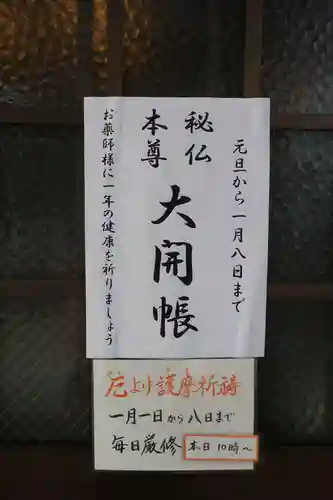 元旦から一月八日まで
秘仏
本尊
大開帳
お薬師様に一年の健康を祈りましょう
厄より護摩祈祷
一月一日から八日まで
毎日厳修
本日10時〜